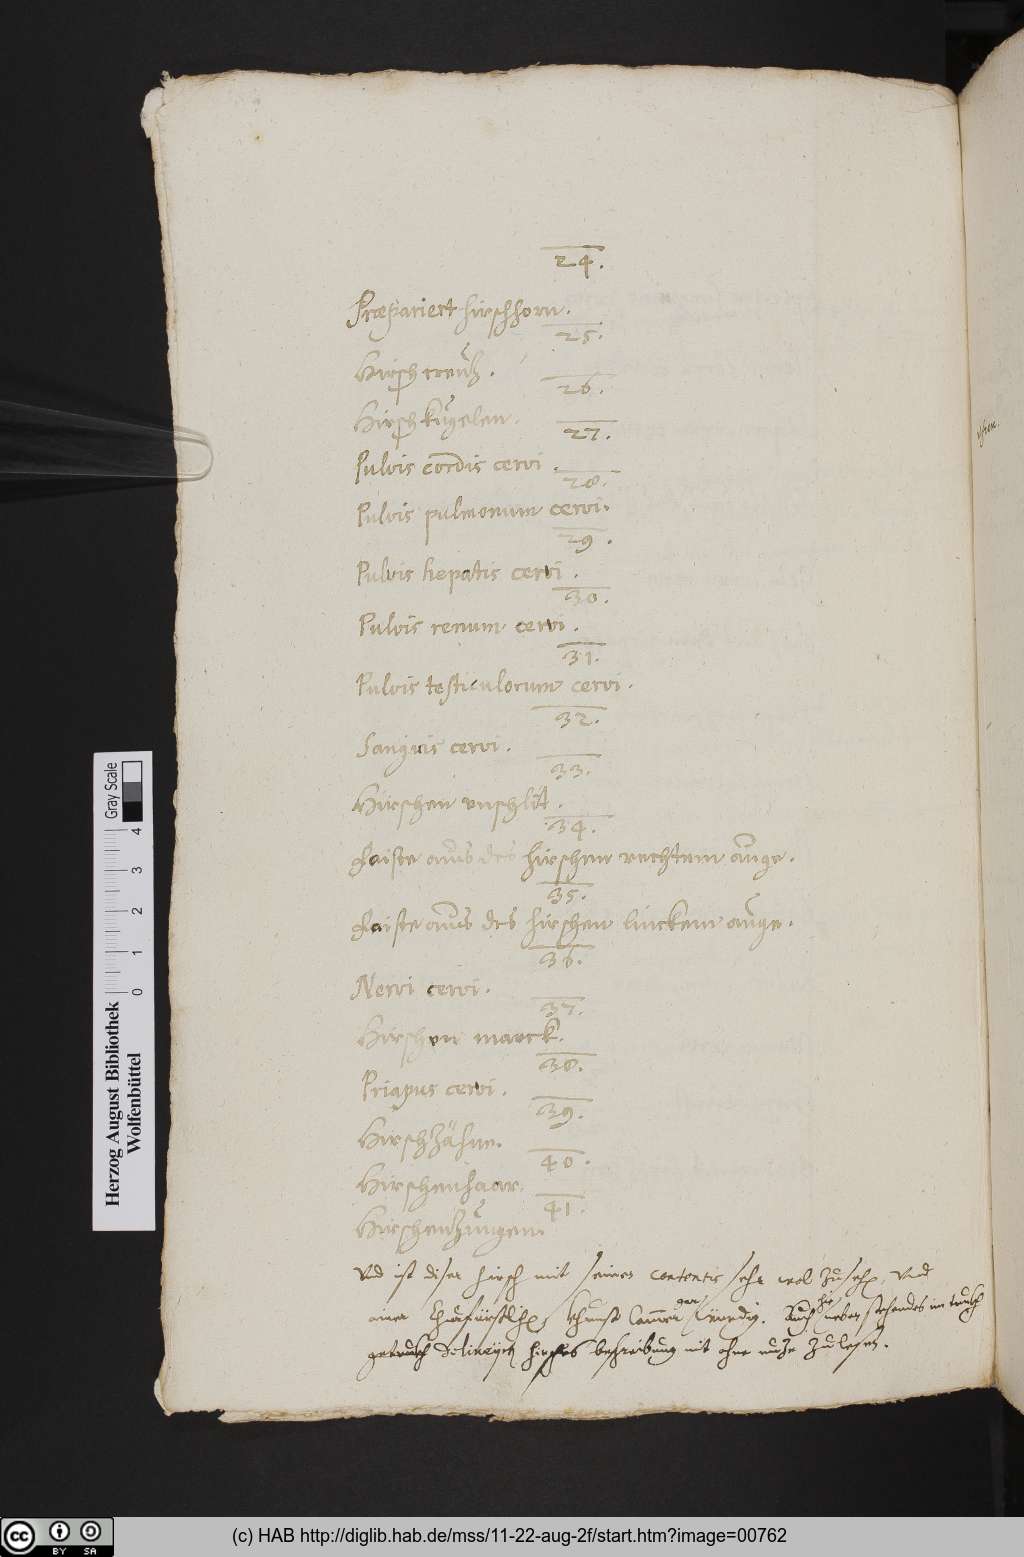 24.
Præpariert hirschhorn.
25.
Hirsch creütz.
26.
Hirsch kugelen.
27.
Pulvis cordis cervi.
28.
Pulvis pulmonum cervi.
29.
Pulvis hepatis cervi.
30.
Pulvis renum cervi.
31.
Pulvis testiculorum cervi.
32.
Sanguis cervi.
33.
Hirschen unschlit.
34.
Faiste auss des hirschen rechtem auge.
35.
Faiste auss des hirschen linckem auge.
36.
Nervi cervi.
37.
Hirschen marck.
38.
Priapus cervi.
39.
Hirschzähne.
40.
Hirschenhaar.
41.
Hirschenzungen.
Und ist diser hirsch mit seinen contentis sehr wol zu sehen, und
einer Churfürstlichen Khunst Cammer gar würdig. Auch hie neben stehendes im truckh
hirsches beschreibung nit ohne nuze zu lesen.
Herzog August Bibliothek
Wolfenbüttel
0 1 2 3 4
Gray Scale
cc BY SA
(c) HAB http://diglib.hab.de/mss/11-22-aug-2f/start.htm?image=00762